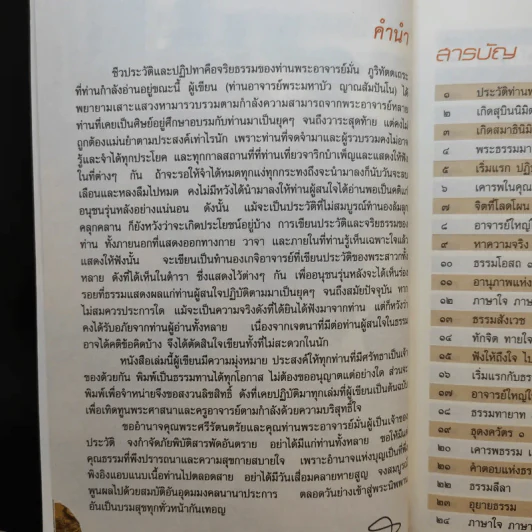 คำนำ
ชีวประวัติและปฏิปทาคือจริยธรรมของท่านพระอาจารย์มั่น ภูริทัตตเถระ
ที่ท่านกำลังอ่านอยู่ขณะนี้ ผู้เขียน (ท่านอาจารย์พระมหาบัว ญาณสัมปันโน) ได้
พยายามเสาะแสวงหามารวบรวมตามกำลังความสามารถจากพระอาจารย์หลาย
ท่านที่เคยเป็นศิษย์อยู่ศึกษาอบรมกับท่านมาเป็นยุคๆ จนถึงวาระสุดท้าย แต่คงไม่
ถูกต้องแม่นยำตามประสงค์เท่าไรนัก เพราะท่านที่จดจำมาและผู้รวบรวมคงไม่อาจ
รู้และจำได้ทุกประโยค และทุกกาลสถานที่ที่ท่านเที่ยวจาริกบำเพ็ญและแสดงให้ฟัง
ในที่ต่างๆ กัน ถ้าจะรอให้จำได้หมดทุกแง่ทุกกระทงถึงจะนำมาลงก็นับวันจะลบ
เลือนและหลงลืมไปหมด คงไม่มีหวังได้นำมาลงให้ท่านผู้สนใจได้อ่านพอเป็นคติแก่
อนุชนรุ่นหลังอย่างแน่นอน ดังนั้น แม้จะเป็นประวัติที่ไม่สมบูรณ์ทำนองล้มลุก
คลุกคลาน ก็ยังหวังว่าจะเกิดประโยชน์อยู่บ้าง การเขียนประวัติและจริยธรรมของ
ท่าน ทั้งภายนอกที่แสดงออกทางกาย วาจา และภายในที่ท่านรู้เห็นเฉพาะใจแล้ว
แสดงให้ฟังนั้น จะเขียนเป็นทำนองเกจิอาจารย์ที่เขียนประวัติของพระสาวกทั้ง
หลาย ดังที่ได้เห็นในตำรา ซึ่งแสดงไว้ต่างๆ กัน เพื่ออนุชนรุ่นหลังจะได้เห็นร่อง
รอยที่ธรรมแสดงผลแก่ท่านผู้สนใจปฏิบัติตามมาเป็นยุคๆ จนถึงสมัยปัจจุบัน หาก
ไม่สมควรประการใด แม้จะเป็นความจริงดังที่ได้ยินได้ฟังมาจากท่าน แต่ก็หวังว่า
คงได้รับอภัยจากท่านผู้อ่านทั้งหลาย เนื่องจากเจตนาที่มีต่อท่านผู้สนใจในธรรม
อาจได้คติข้อคิดบ้าง จึงได้ตัดสินใจเขียนทั้งที่ไม่สะดวกใจนัก
หนังสือเล่มนี้ผู้เขียนมีความมุ่งหมาย ประสงค์ให้ทุกท่านที่มีศรัทธาเป็นเจ้า
ของด้วยกัน พิมพ์เป็นธรรมทานได้ทุกโอกาส ไม่ต้องขออนุญาตแต่อย่างใด ส่วนจะ
พิมพ์เพื่อจำหน่ายจึงขอสงวนลิขสิทธิ์ ดังที่เคยปฏิบัติมาทุกเล่มที่ผู้เขียนเป็นต้นฉบับ
เพื่อเทิดทูนพระศาสนาและครูอาจารย์ตามกำลังด้วยความบริสุทธิ์ใจ
ขออำนาจคุณพระศรีรัตนตรัยและคุณท่านพระอาจารย์มั่นผู้เป็นเจ้าของ
ประวัติ จงกำจัดภัยพิบัติสารพัดอันตราย อย่าได้มีแก่ท่านทั้งหลาย ขอให้มีแต่
คุณธรรมที่พึงปรารถนาและความสุขกายสบายใจ เพราะอำนาจแห่งบุญเป็นที่พึ่ง
พิงอิงแอบแนบเนื้อท่านไปตลอดสาย อย่าได้มีวันเสื่อมคลายหายสูญ จงสมบูรณ์
พูนผลไปด้วยสมบัติอันอุดมมงคลนานาประการ ตลอดวันย่างเข้าสู่พระนิพพาน
อันเป็นบรมสุขทุกทั่วหน้ากันเทอญ
สารบัญ
๑ ประวัติท่าน
๒ เกิดสุบินนิมิต
๓ เกิดสมาธินิมิต
๔ พระธรรมมา
๕ เริ่มแรก
๖ เคารพในคุณ
๗ จิตที่โลดโผน
๘ อาจารย์ใหญ่
๙ หาความจริง
๑๐ ธรรมโอสถ
๑๑ อานุภาพแห่ง
๑๒ ภาษาใจ
๑๓ ธรรมสังเวช
๑๔ ทักจิต ทายใจ
๑๕ ฟังให้ถึงใจ
๑๖ เริ่มแรกกับ
๑๗ อาจารย์ใหญ่
๑๘ ธรรมทายาท
๑๙ ธุดงควัตร ๑
๒๐ เคารพธรรม
๒๑ คำตอบแห่ง
๒๒ ธรรมลีลา
๒๓ อุบายธรรม
๒๔ ภาษาใจ